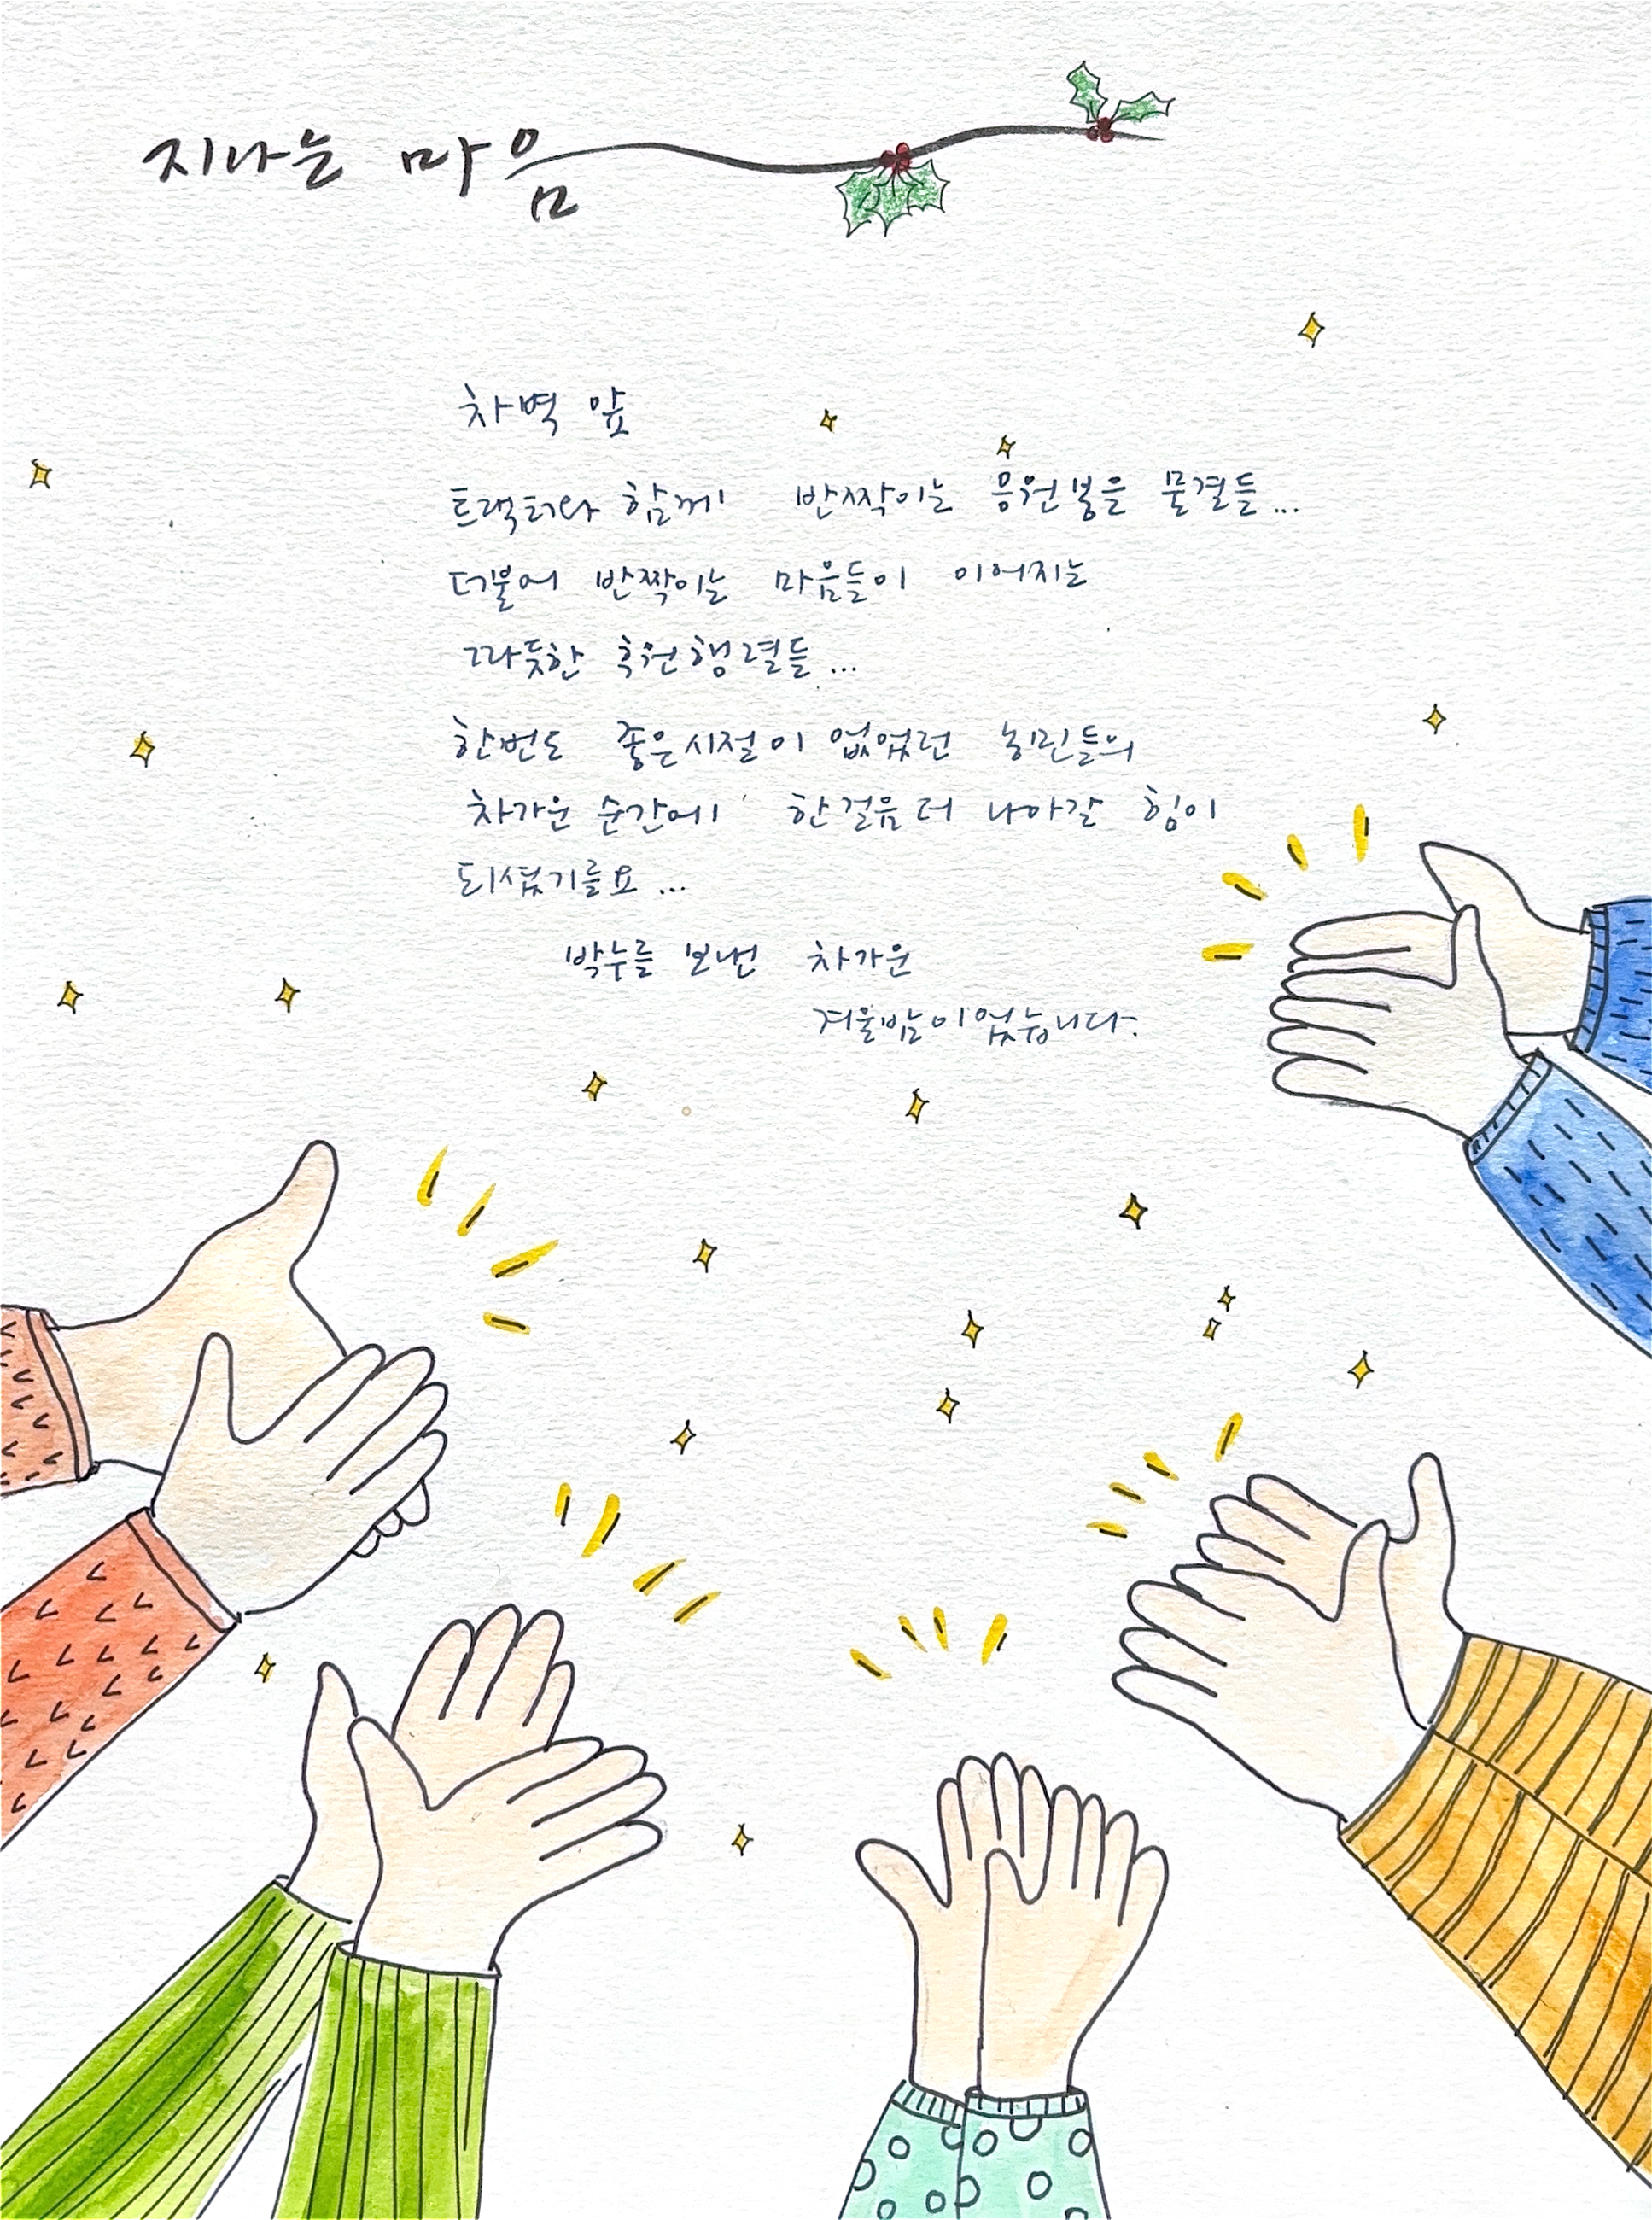 지나는 마음
차벽 앞
트랙터와 함께 반짝이는 응원봉을 물결들...
더불어 반짝이는 마음들이 이어지는
따뜻한 후원행렬들...
한번도 좋은시절이 없었던 농민들의
차가운 순간에 한걸음 더 나아갈 힘이
되셨기를요...
박수를 보낸 차가운
겨울밤이었습니다.